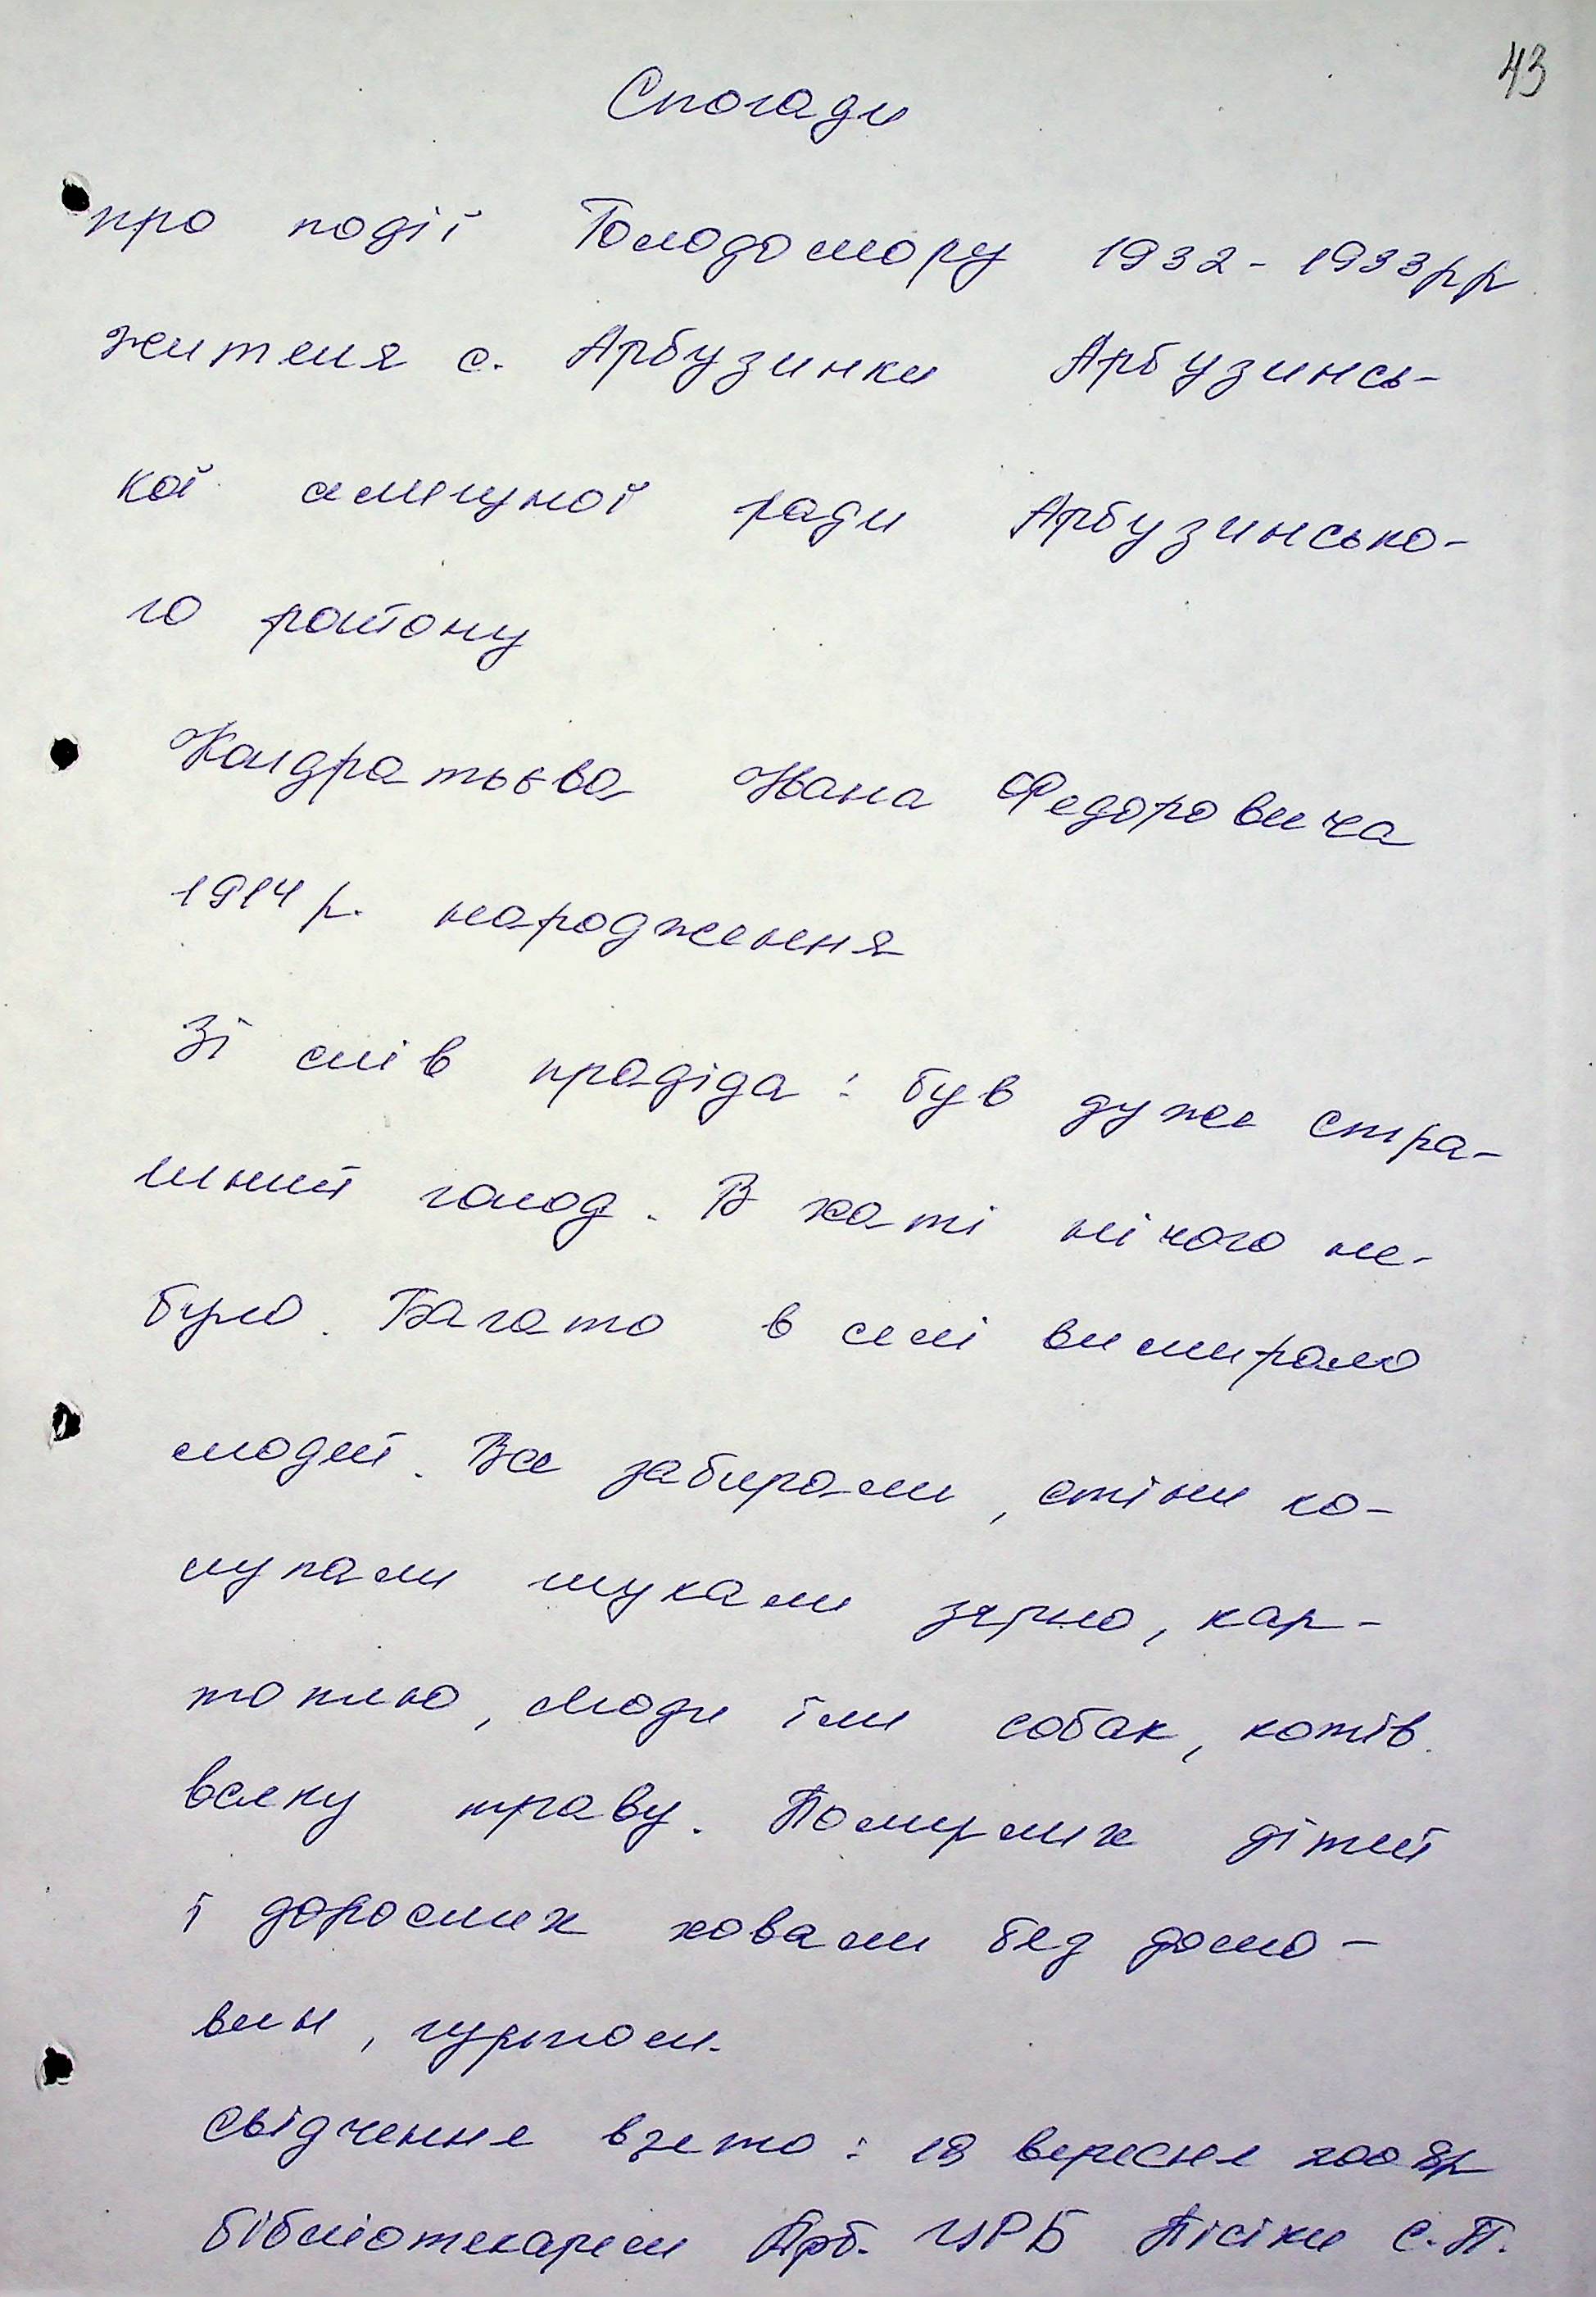 43
Спогади
про події Голодомору 1932-1933рр
жителя с. Арбузинки Арбузинсь-
кої селищної ради Арбузинсько-
го району
Кондратьєва Івана Федоровича
1914 р. народження
Зі слів прадіда: був дуже стра-
шний голод. В хаті нічого не-
було. Багато в селі вимирало
людей. Все забирали, стіни ко-
лупали шукали зярно, кар-
топлю, люди їли собак, котів
всяку траву. Померлих дітей
і дорослих ховали без домо-
вин, гуртом.
Свідчення взято: 18 вересня 2008р
бібліотекарем Арб. ЦРБ С.П.